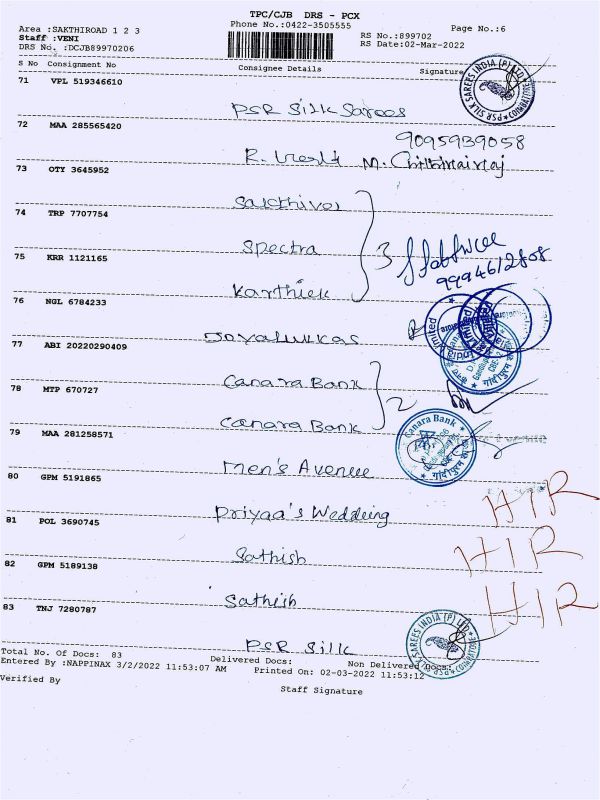 TPC/CJB DRS - PCX
Area :SAKTHIROAD 1 2 3 Phone No.:0422-3505555 Page No.:6
Staff :VENI RS No.:899702
DRS No. :DCJB89970206 RS Date:02-Mar-2022
S No Consignment No Consignee Details Signature
71 VPL 519346610
PSR Silk Sarees
PSR SILK SAREES INDIA (P) LTD COIMBATORE
72 MAA 285565420
9095939058
R. M.
73 OTY 3645952
Sakthivel
74 TRP 7707754
Spectra 3
75 KRR 1121165
9994612808
Karthick
76 NGL 6784233
Joyalukkas
77 ABI 20220290409
Canara Bank
78 MTP 670727 2
Canara Bank
Canara Bank
79 MAA 281258571
Men's Avenue
80 GPM 5191865 HIR
Priyaa's Wedding
81 POL 3690745 HIR
Sathish
82 GPM 5189138 HIR
Sathish
83 TNJ 7280787
PSR Silk
SILK SAREES INDIA (P) LTD COIMBATORE
Total No. Of Docs: 83 Delivered Docs: Non Delivered Docs:
Entered By :NAPPINAX 3/2/2022 11:53:07 AM Printed On: 02-03-2022 11:53:12
Verified By Staff Signature